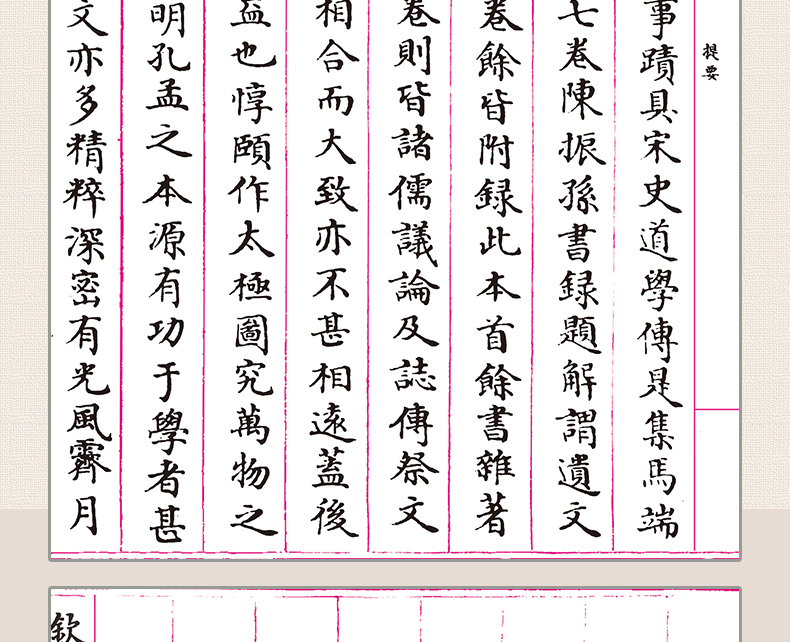 提要
事蹟具宋史道學傳是集馬端
七卷陳振孫書録題解謂遺文
卷餘皆附録此本首餘書雜著
卷則皆諸儒議論及誌傳祭文
相合而大致亦不甚相遠蓋後
益也惇頤作太極圖究萬物之
明孔孟之本源有功于學者甚
文亦多精粹深密有光風霽月
欽